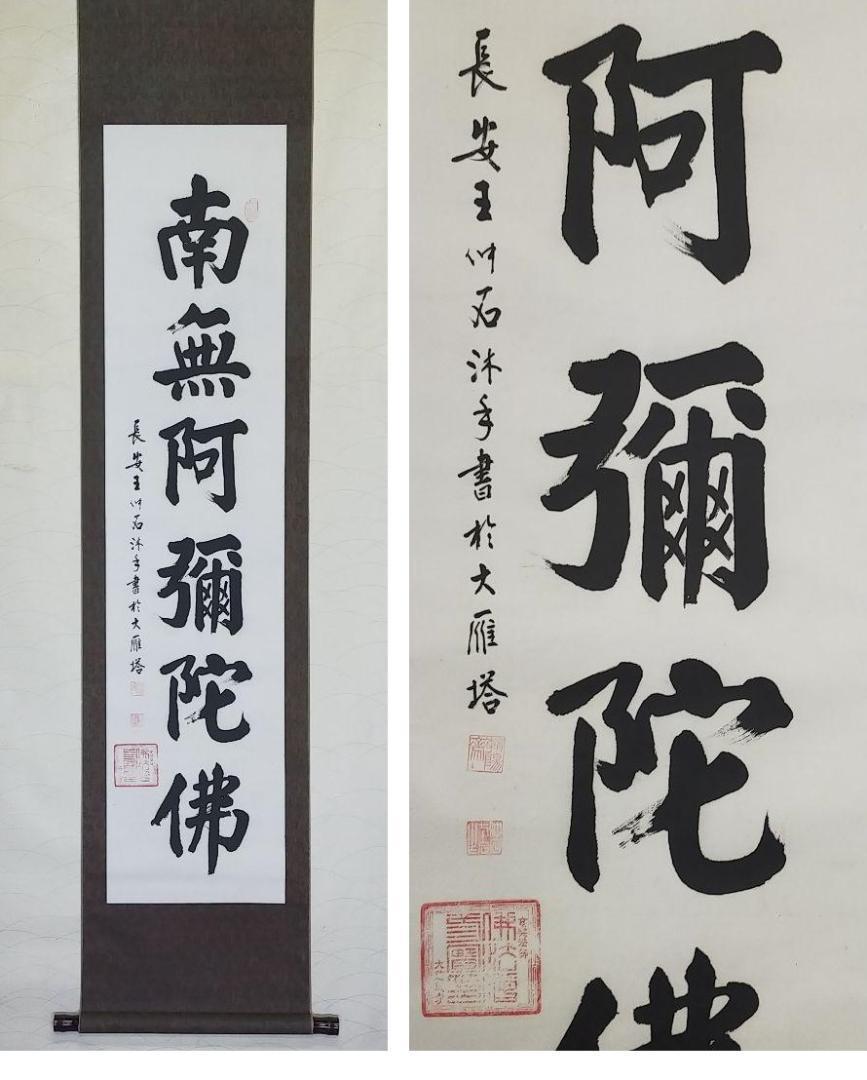 南無阿彌陀佛
長安王仙石沐手書於大雁塔
阿彌陀佛
長安王仙石沐手書於大雁塔